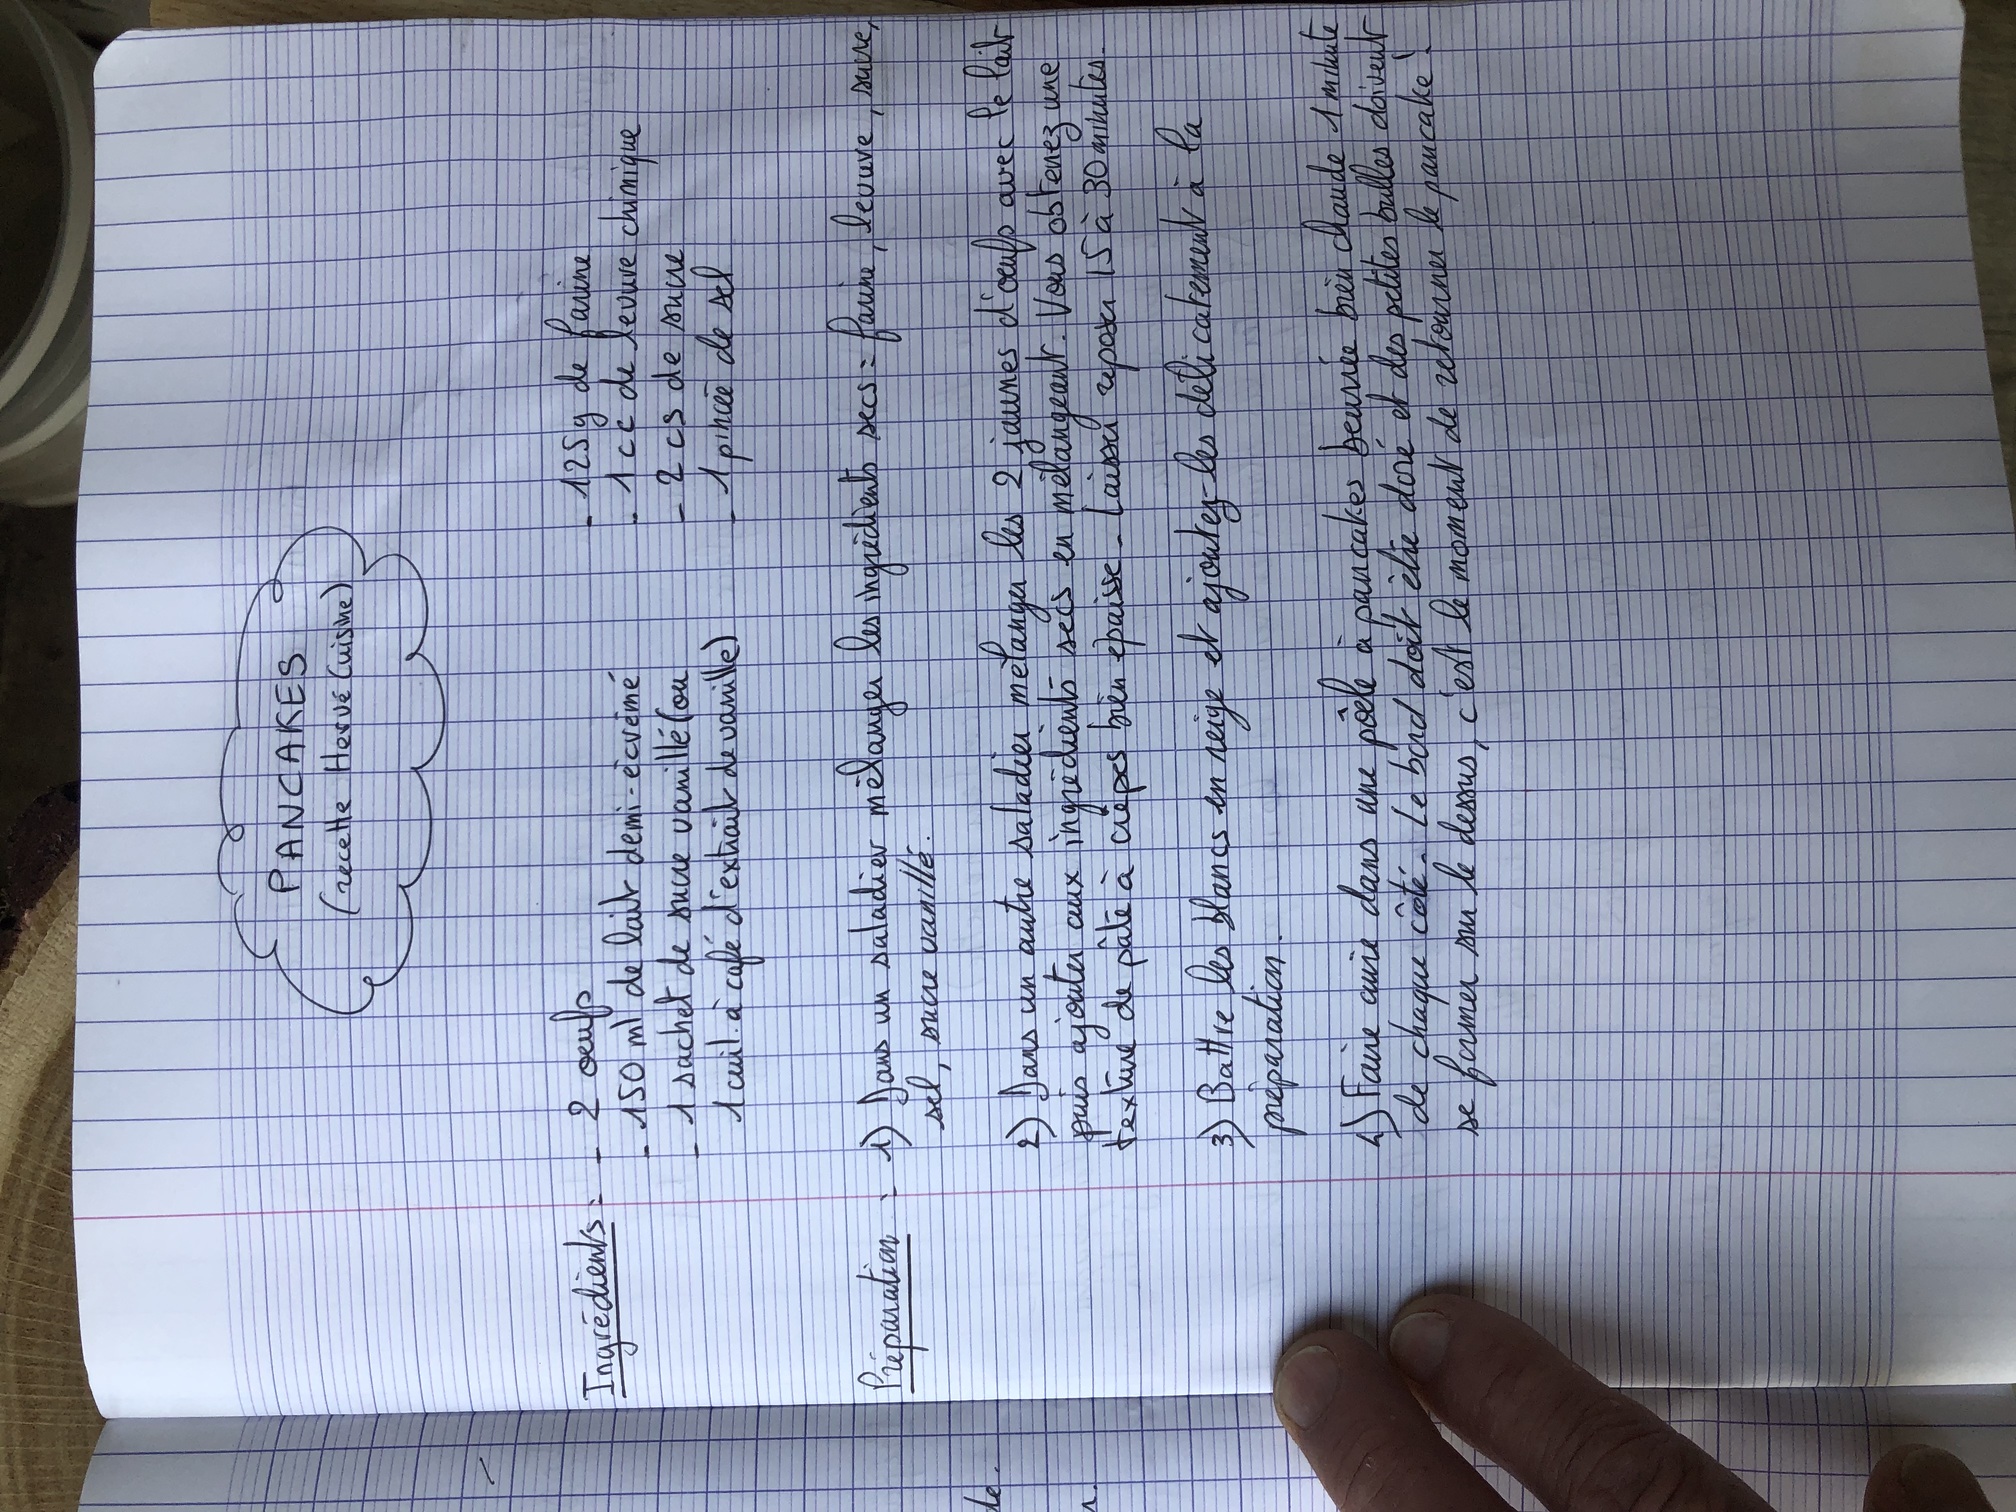 PANCAKES
(recette Hervé Cuisine)
Ingrédients : - 2 oeufs
- 150 ml de lait demi-écrémé
- 1 sachet de sucre vanillé (ou
1 cuil. à café d'extrait de vanille)
- 125g de farine
- 1 cc de levure chimique
- 2 cs de sucre
- 1 pincée de sel
Préparation : 1) Dans un saladier mélanger les ingrédients secs : farine, levure, sucre,
sel, sucre vanillé.
2) Dans un autre saladier mélanger les 2 jaunes d'oeufs avec le lait
puis ajouter aux ingrédients secs en mélangeant. Vous obtenez une
texture de pâte à crêpes bien épaisse. Laisser reposer 15 à 30 minutes.
3) Battre les blancs en neige et ajoutez-les délicatement à la
préparation.
4) Faire cuire dans une poêle à pancakes beurrée bien chaude 1 minute
de chaque côté. Le bord doit être doré et des petites bulles doivent
se former sur le dessus, c'est le moment de retourner le pancake !
de.